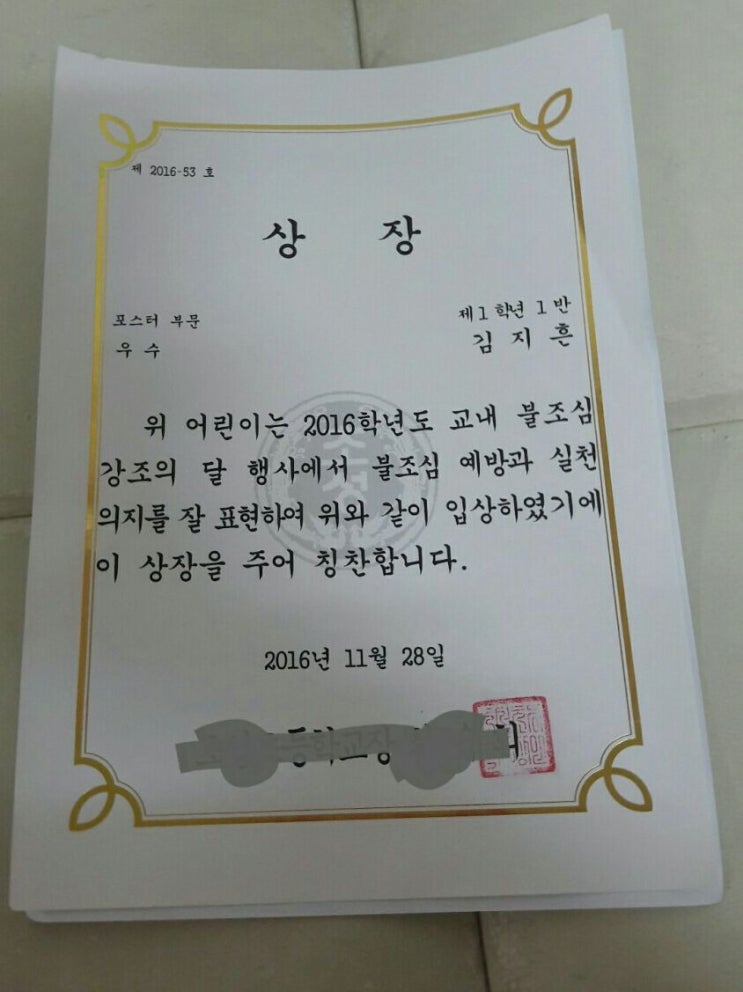 제 2016-53 호
상 장
포스터 부문
우수
제1학년 1반
김지흔
위 어린이는 2016학년도 교내 불조심
강조의 달 행사에서 불조심 예방과 실천
의지를 잘 표현하여 위와 같이 입상하였기에
이 상장을 주어 칭찬합니다.
2016년 11월 28일
등학교장